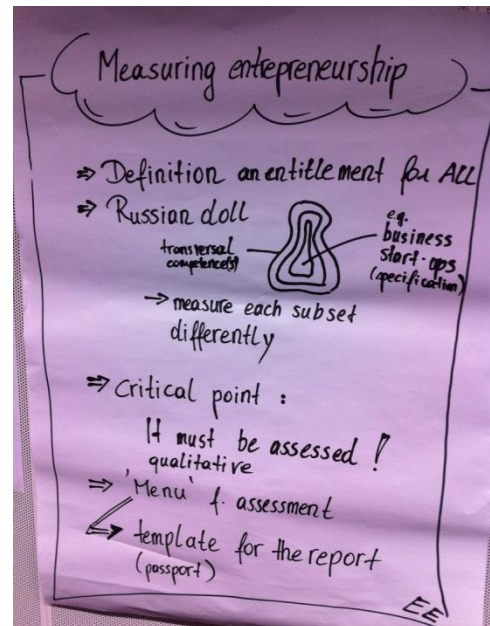 Measuring entrepreneurship
⇒ Definition an entitlement for ALL
⇒ Russian doll
transversal
competence(s)
e.g.
business
start-ups
(specification)
→ measure each subset
differently
⇒ Critical point :
It must be assessed !
qualitative
⇒ 'Menu' f. assessment
⇒ template for the report
(passport)
EE